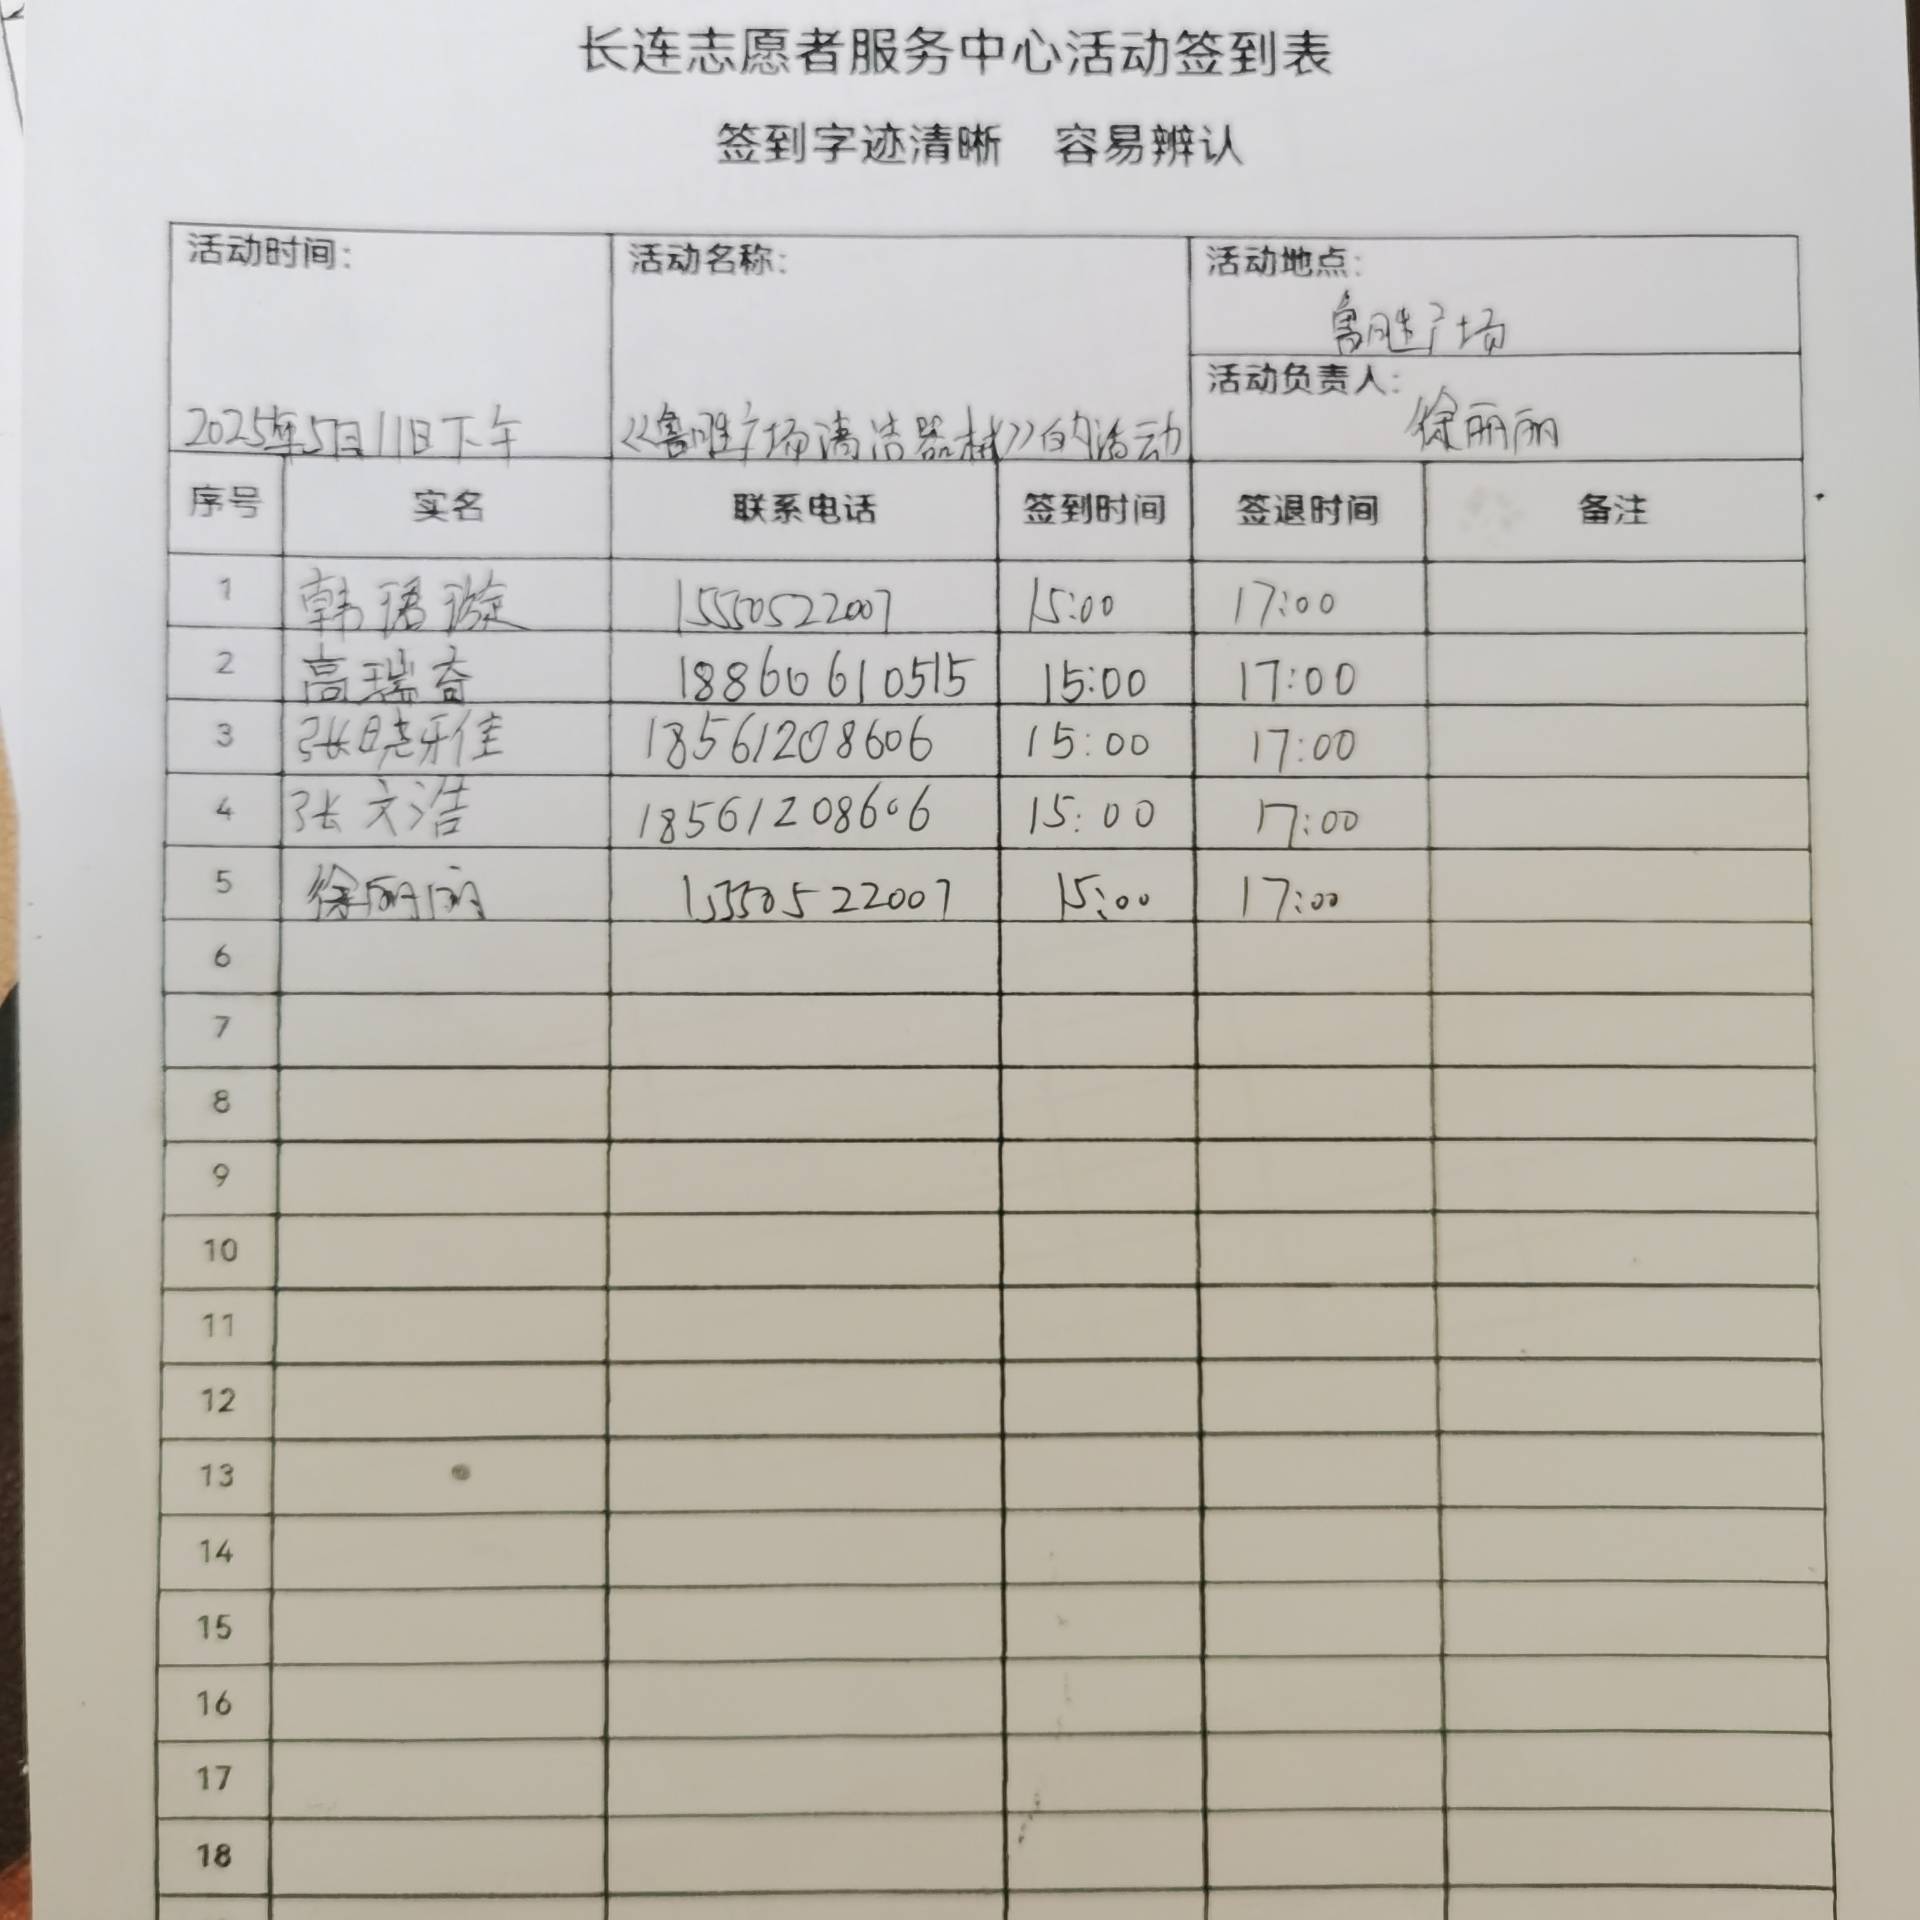 长连志愿者服务中心活动签到表
签到字迹清晰 容易辨认
活动时间: 活动名称: 活动地点:
鲁胜广场
活动负责人:
2025年5月11日下午 《鲁胜广场清洁器材》的活动 徐丽丽
序号 实名 联系电话 签到时间 签退时间 备注
1 韩珺璇 15550522007 15:00 17:00
2 高瑞奇 18860610515 15:00 17:00
3 张晓雅佳 18561208606 15:00 17:00
4 张文浩 18561208606 15:00 17:00
5 徐丽丽 15550522007 15:00 17:00
6
7
8
9
10
11
12
13
14
15
16
17
18